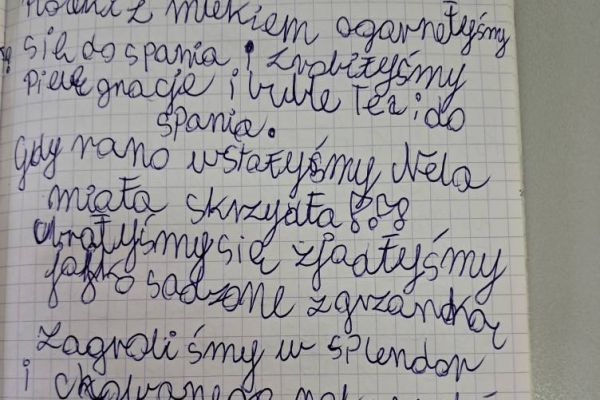 z mlekiem ogarnełyśmy
się do spania i zrobiłyśmy
pielęgnacje i bible Też i do
spania.
Gdy rano wstałyśmy Nela
miała skrzydła
ubrałyśmy się zjadłyśmy
jajko sadzone z grzanką
zagraliśmy w splendor
i chowanego